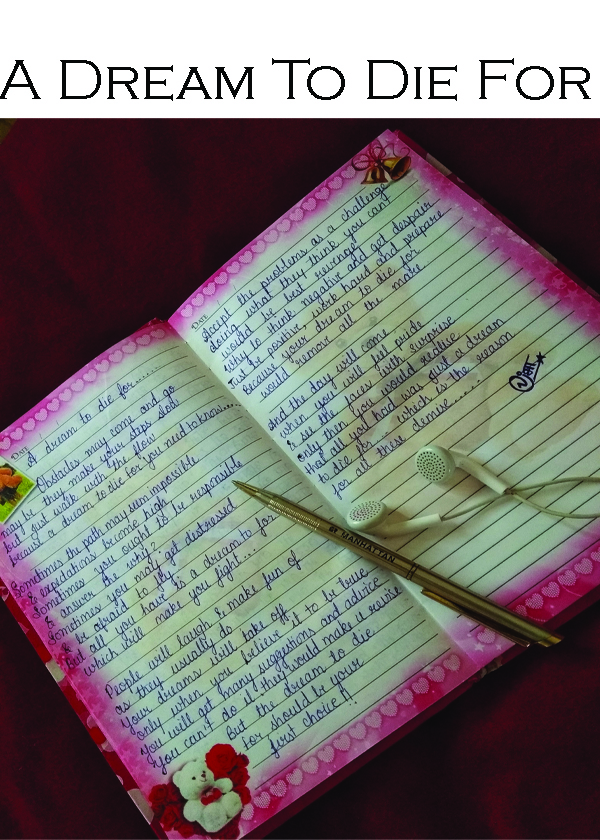 A DREAM TO DIE FOR
DATE
A dream to die for......
Obstacles may come and go
may be they make your steps slow
but u just walk with the flow
because a dream to die for you need to know....
Sometimes the path may seem impossible
& expectations become high
Sometimes you ought to be responsible
& answer the why?
Sometimes you may get distressed
& be afraid to fly
But all you have is a dream to for
which will make you fight...
People will laugh & make fun of
as they usually do
your dreams will take off
only when you believe it to be true
You will get many suggestions and advice
You can't do it! they would make u revise
But the dream to die
for should be your
first choice!!
DATE
Accept the problems as a challenge
doing what they think you can't
would be best revenge
Why to think negative and get despair
Just be positive, work hard and prepare
Because your dream to die for
would remove all the mare
And the day will come
when you will feel pride
& see the faces with surprise
only then you would realise
that all you had was just a dream
to die for which is the reason
for all these demise......
BY MANHATTAN